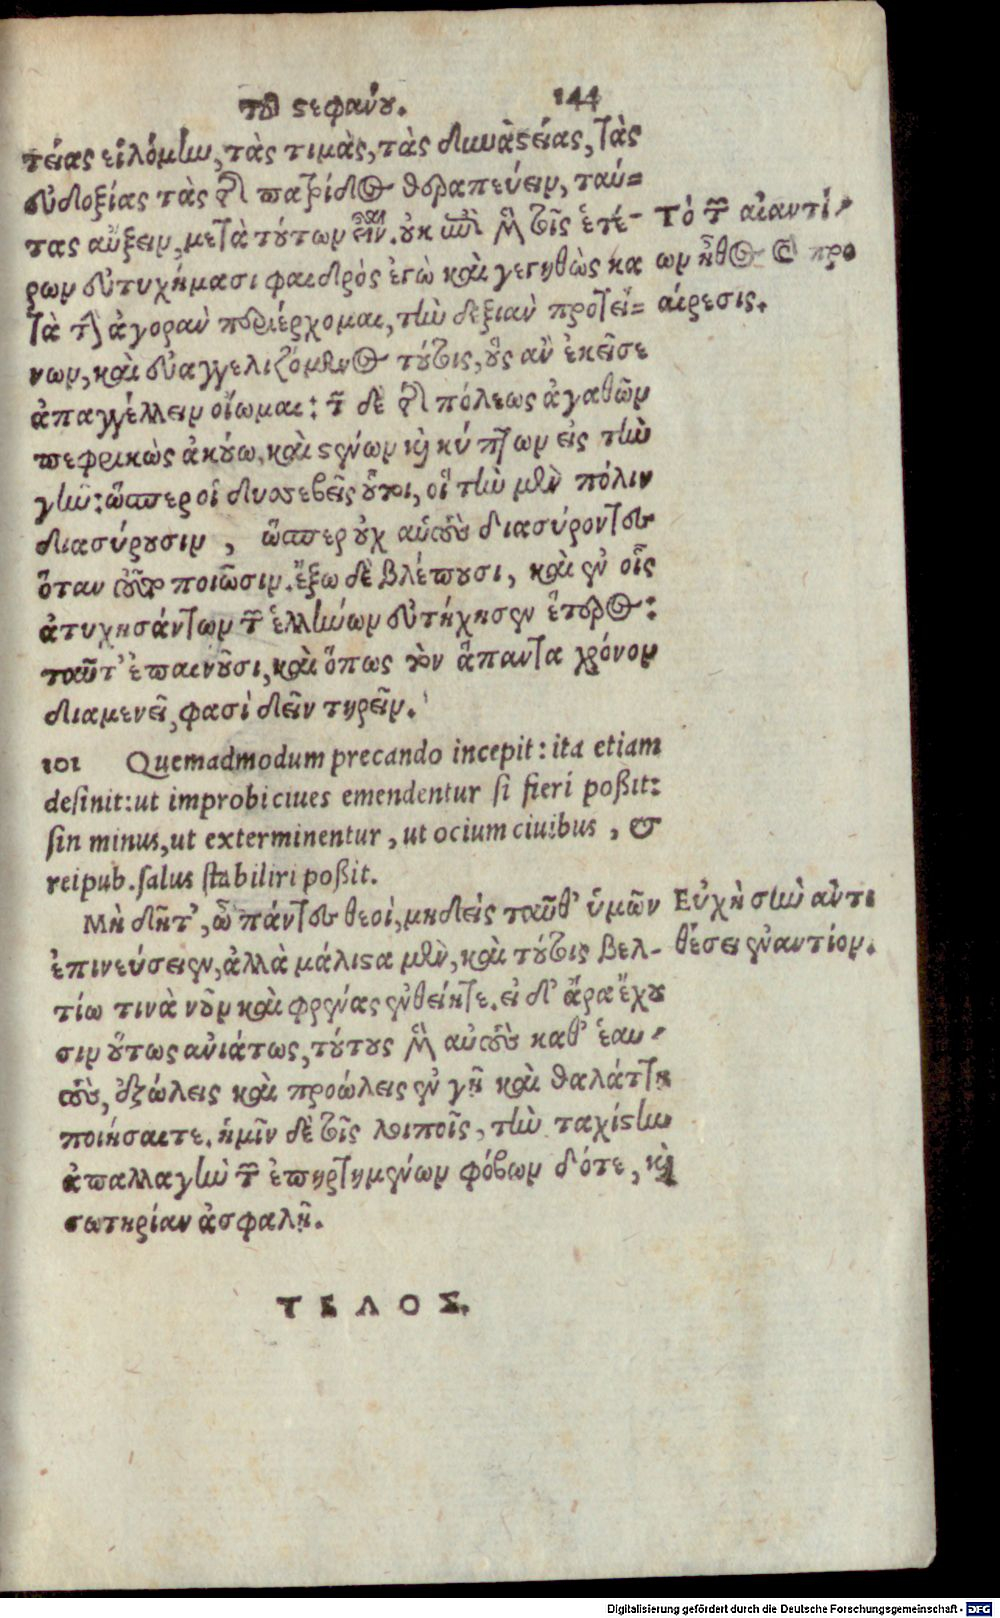 τοῦ στεφάνου. 144
τείας εἱλόμην, τὰς τιμὰς, τὰς δυναστείας, τὰς
εὐδοξίας τὰς τῆς πατρίδος θεραπεύειν, ταύ=
τας αὔξειν, μετὰ τούτων εἶναι. οὐκ ἐπὶ μὲν τοῖς ἑτέ-
ρων εὐτυχήμασι φαιδρὸς ἐγὼ καὶ γεγηθὼς κα
τὰ τὴν ἀγορὰν περιέρχομαι, τὴν δεξιὰν προτεί=
νων, καὶ εὐαγγελιζόμενος τούτοις, οὓς ἂν ἐκεῖσε
ἀπαγγέλλειν οἴωμαι: τῶν δὲ τῆς πόλεως ἀγαθῶν
πεφρικὼς ἀκούω, καὶ στένων καὶ κύπτων εἰς τὴν
γῆν: ὥσπερ οἱ δυσσεβεῖς οὗτοι, οἳ τὴν μὲν πόλιν
διασύρουσιν, ὥσπερ οὐχ αὑτοὺς διασύροντες
ὅταν τοῦτο ποιῶσιν. ἔξω δὲ βλέπουσι, καὶ ἐν οἷς
ἀτυχησάντων τῶν ἑλλήνων εὐτύχησεν ἕτερος:
ταῦτ' ἐπαινοῦσι, καὶ ὅπως τὸν ἅπαντα χρόνον
διαμενεῖ, φασὶ δεῖν τηρεῖν.
Τὸ τῶν αἰαντί-
ων ἦθος καὶ προ
αίρεσις.
101 Quemadmodum precando incepit: ita etiam
desinit: ut improbi ciues emendentur si fieri poßit:
sin minus, ut exterminentur, ut ocium ciuibus, &
reipub. salus stabiliri poßit.
Μὴ δῆτ', ὦ πάντες θεοὶ, μηδεὶς ταῦθ' ὑμῶν
ἐπινεύσειεν, ἀλλὰ μάλιστα μὲν, καὶ τούτοις βελ-
τίω τινὰ νοῦν καὶ φρένας ἐνθείητε. εἰ δ' ἄρα ἔχου
σιν οὕτως ἀνιάτως, τούτους μὲν αὐτοὺς καθ' ἑαυ-
τοὺς, ἐξώλεις καὶ προώλεις ἐν γῇ καὶ θαλάττῃ
ποιήσαιτε. ἡμῖν δὲ τοῖς λοιποῖς, τὴν ταχίστην
ἀπαλλαγὴν τῶν ἐπηρτημένων φόβων δότε, καὶ
σωτηρίαν ἀσφαλῆ.
Εὐχὴ σὺν ἀντι
θέσει ἐναντίον.
ΤΕΛΟΣ.
Digitalisierung gefördert durch die Deutsche Forschungsgemeinschaft - DFG